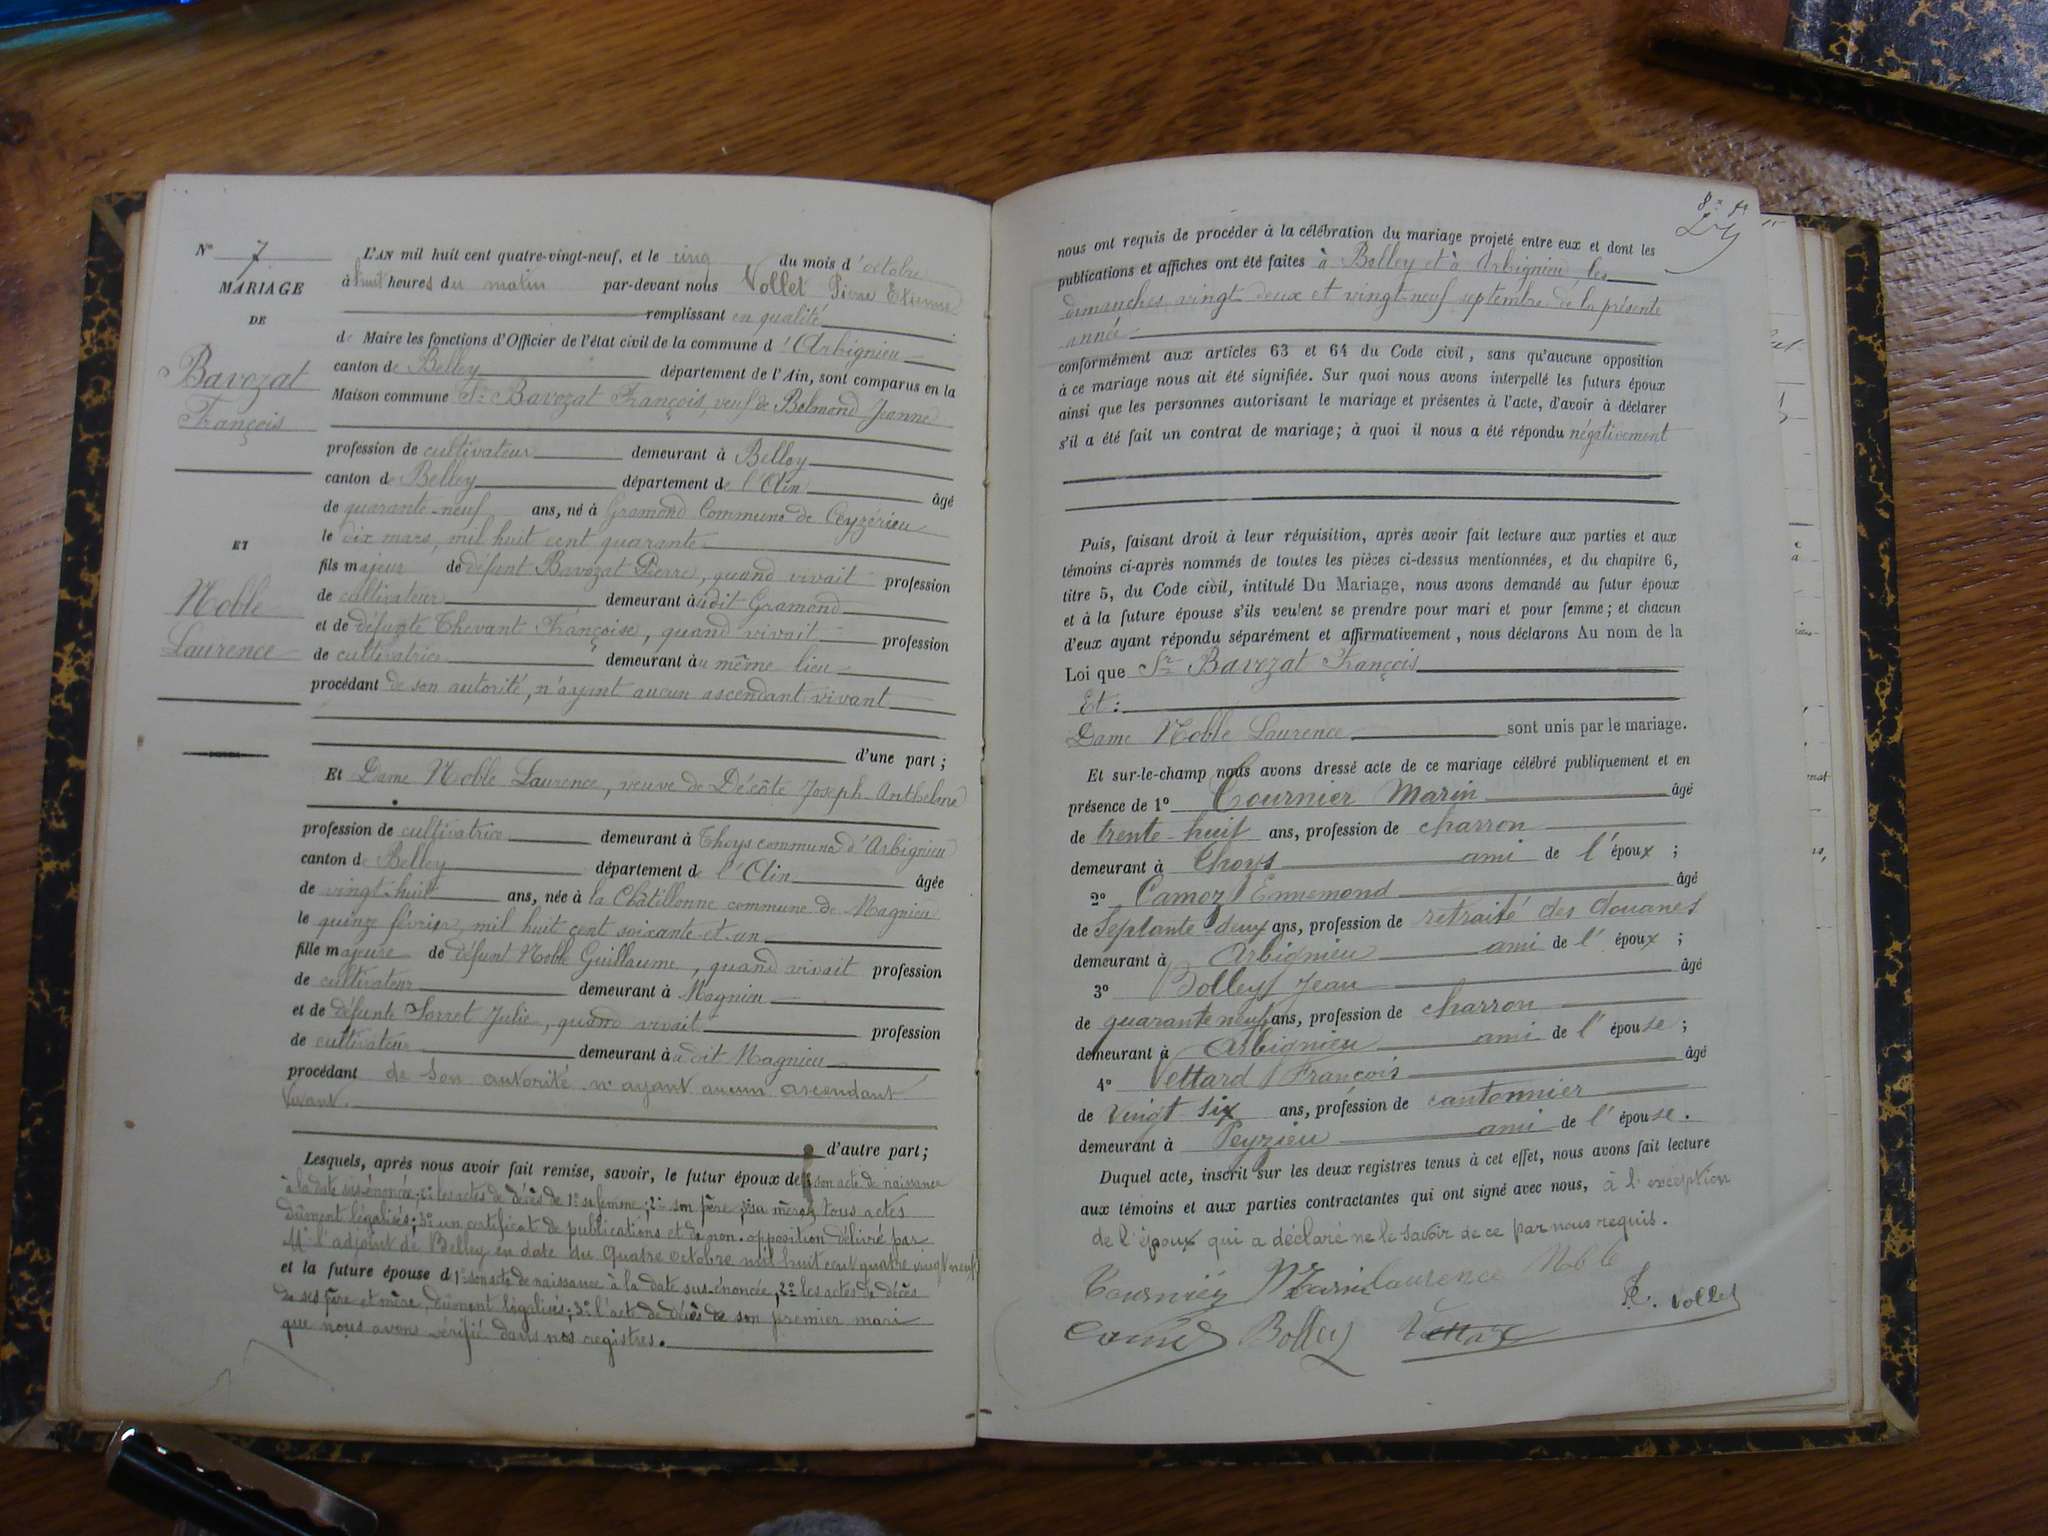 N° 7
MARIAGE
DE
Bavozat
François
ET
Noble
Laurence
L'AN mil huit cent quatre-vingt-neuf, et le cinq du mois d'octobre
à huit heures du matin par-devant nous Vollet Pierre Etienne
remplissant en qualité
de Maire les fonctions d'Officier de l'état civil de la commune d'Arbignieu
canton de Belley département de l'Ain, sont comparus en la
Maison commune Sr Bavozat François, veuf de Belmond Jeanne
profession de cultivateur demeurant à Belley
canton de Belley département de l'Ain âgé
de quarante-neuf ans, né à Gramond Commune de Ceyzérieu
le dix mars, mil huit cent quarante
fils majeur de défunt Bavozat Pierre, quand vivait profession
de cultivateur demeurant audit Gramond
et de défunte Thevant Françoise, quand vivait profession
de cultivatrice demeurant au même lieu
procédant de son autorité, n'ayant aucun ascendant vivant
d'une part ;
Et Dame Noble Laurence, veuve de Décôte Joseph-Anthelme
profession de cultivatrice demeurant à Thoys commune d'Arbignieu
canton de Belley département de l'Ain âgée
de vingt-huit ans, née à la Châtillonne commune de Magnieu
le quinze février, mil huit cent soixante-et-un
fille majeure de défunt Noble Guillaume, quand vivait profession
de cultivateur demeurant à Magnieu
et de défunte Sorret Julie, quand vivait profession
de cultivateur demeurant audit Magnieu
procédant de son autorité n'ayant aucun ascendant
vivant.
d'autre part ;
Lesquels, après nous avoir fait remise, savoir, le futur époux de son acte de naissance
à la date sus-énoncée; 2° les actes de décès de 1° sa femme; 2° son père, 3° sa mère, tous actes
dûment légalisés; 3° un certificat de publications et de non-opposition délivré par
Mr l'adjoint de Belley en date du Quatre octobre mil huit cent quatre vingt neuf
et la future épouse d 1° son acte de naissance à la date sus-énoncée, 2° les actes de décès
de ses père et mère, dûment légalisés; 3° l'acte de décès de son premier mari
que nous avons vérifié dans nos registres.
nous ont requis de procéder à la célébration du mariage projeté entre eux et dont les
publications et affiches ont été faites à Belley et à Arbignieu, les
dimanches vingt-deux et vingt-neuf septembre de la présente
année
conformément aux articles 63 et 64 du Code civil, sans qu'aucune opposition
à ce mariage nous ait été signifiée. Sur quoi nous avons interpellé les futurs époux
ainsi que les personnes autorisant le mariage et présentes à l'acte, d'avoir à déclarer
s'il a été fait un contrat de mariage ; à quoi il nous a été répondu négativement
Puis, faisant droit à leur réquisition, après avoir fait lecture aux parties et aux
témoins ci-après nommés de toutes les pièces ci-dessus mentionnées, et du chapitre 6,
titre 5, du Code civil, intitulé Du Mariage, nous avons demandé au futur époux
et à la future épouse s'ils veulent se prendre pour mari et pour femme ; et chacun
d'eux ayant répondu séparément et affirmativement, nous déclarons Au nom de la
Loi que Sr Bavozat François
Et :
Dame Noble Laurence sont unis par le mariage.
Et sur-le-champ nous avons dressé acte de ce mariage célébré publiquement et en
présence de 1° Tournier Marin âgé
de trente-huit ans, profession de charron
demeurant à Thoys ami de l'époux ;
2° Camoz Ennemond âgé
de Septante-deux ans, profession de retraité des douanes
demeurant à Arbignieu ami de l'époux ;
3° Bolley Jean âgé
de quarante neuf ans, profession de charron
demeurant à Arbignieu ami de l'épouse ;
4° Vettard François âgé
de vingt six ans, profession de cantonnier
demeurant à Peyzieu ami de l'épouse.
Duquel acte, inscrit sur les deux registres tenus à cet effet, nous avons fait lecture
aux témoins et aux parties contractantes qui ont signé avec nous, à l'exception
de l'époux qui a déclaré ne le savoir de ce par nous requis.
Tournier Marin Laurence Noble
Bolley Vettard P.E. Vollet